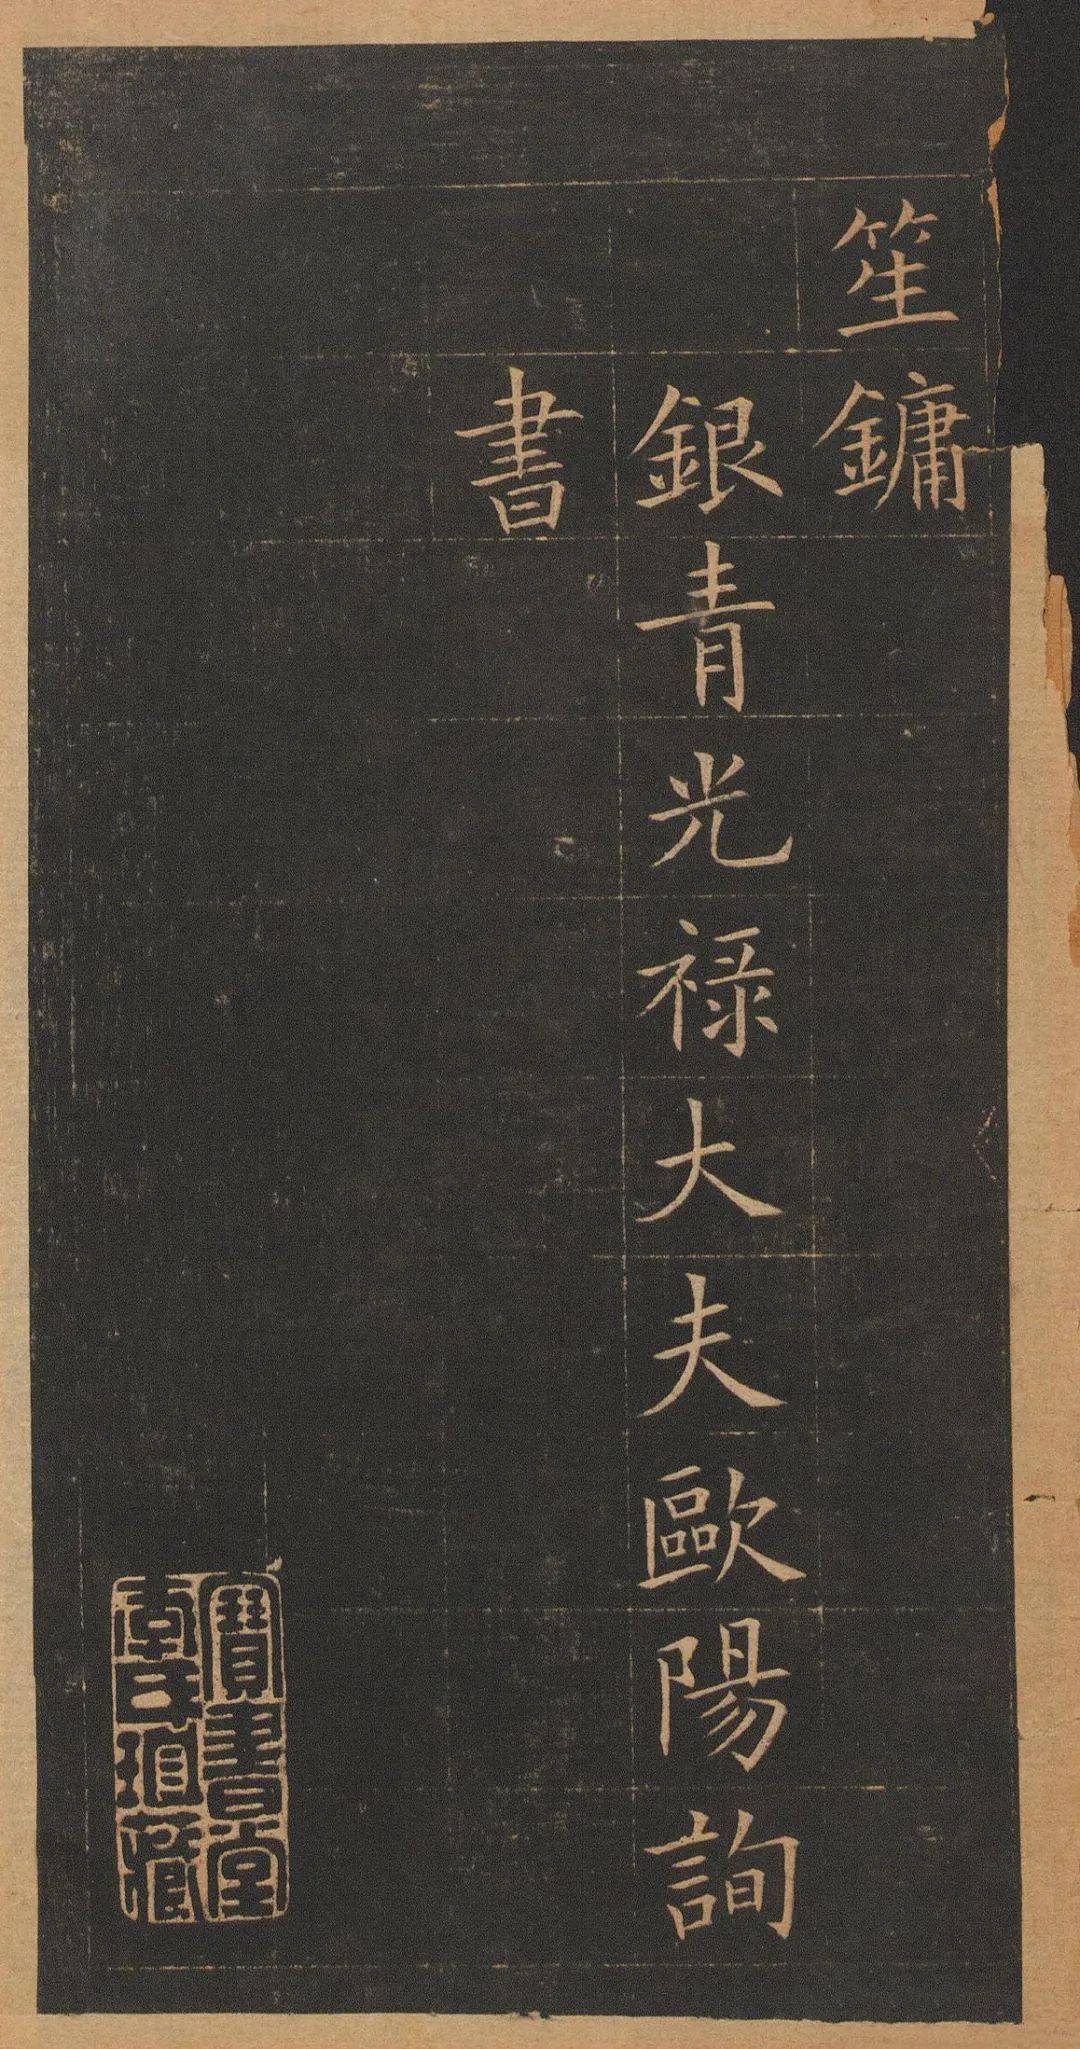 笙鏞
銀青光祿大夫歐陽詢
書
寶書堂